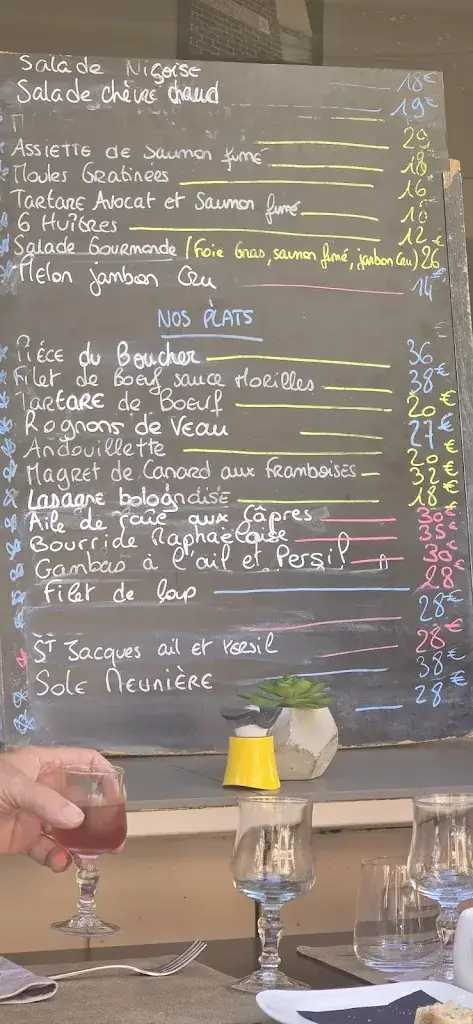 Salade Niçoise 18€
Salade chèvre chaud 19€
29
Assiette de saumon fumé 18
Moules Gratinées 16
Tartare Avocat et Saumon fumé
6 Huîtres 12€
Salade Gourmande (Foie Gras, saumon fumé, jambon Cru) 26
Melon jambon Cru 14€
NOS PLATS
Pièce du Boucher 36
Filet de Boeuf sauce Morilles 38€
Tartare de Boeuf 20€
Rognons de Veau 27€
Andouillette 20€
Magret de Canard aux Framboises 32€
Lasagne bolognaise 18€
Aile de raie aux Câpres 30€
Bourride Raphaëloise 35€
Gambas à l'ail et Persil 30€
28€
Filet de loup 28€
28€
ST Jacques ail et persil 38€
Sole Meunière 28€